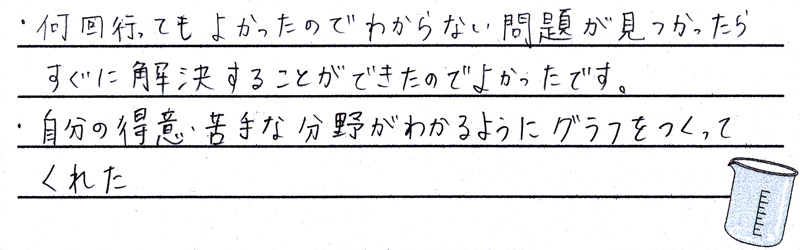 ・何回行ってもよかったのでわからない問題が見つかったら
すぐに解決することができたのでよかったです。
・自分の得意・苦手な分野がわかるようにグラフをつくって
くれた